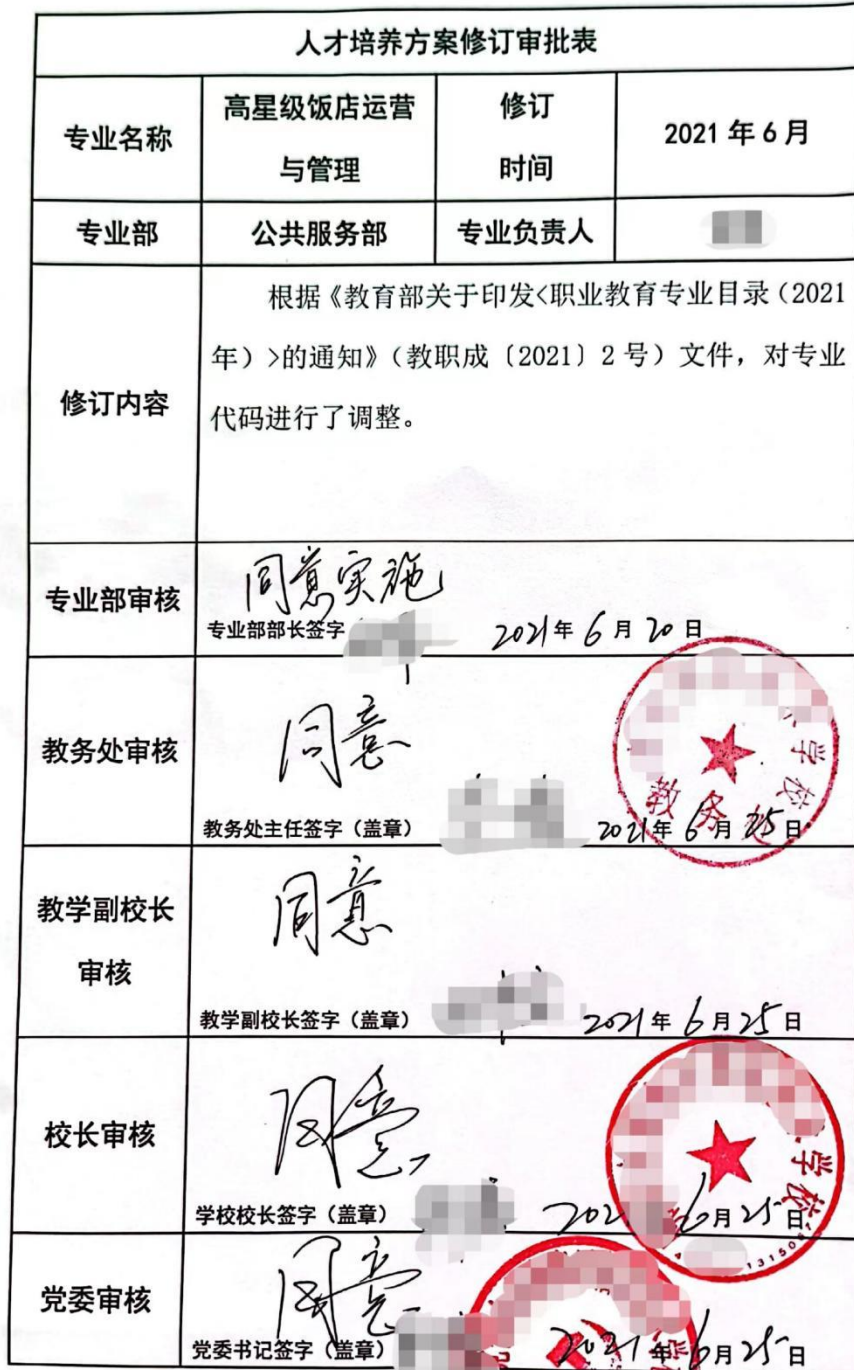 人才培养方案修订审批表
专业名称
高星级饭店运营
与管理
修订
时间
2021 年 6 月
专业部
公共服务部
专业负责人
修订内容
根据《教育部关于印发<职业教育专业目录（2021
年）>的通知》（教职成〔2021〕2 号）文件，对专业
代码进行了调整。
专业部审核
同意实施
专业部部长签字
2021年 6 月 20 日
教务处审核
同意
学校
教务处
教务处主任签字（盖章）
2021年 6 月 25 日
教学副校长
审核
同意
教学副校长签字（盖章）
2021 年 6 月 25 日
校长审核
同意
学校
学校校长签字（盖章）
202 6月 25 日
131506
党委审核
同意
党委书记签字（盖章）
2021 年 6月 25 日